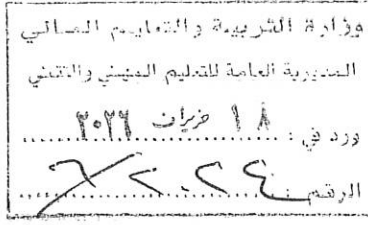 وزارة التربية والتعليم العالي
المديرية العامة للتعليم المهني والتقني
ورد في : ١٨ حزيران ٢٠٢٦
الرقم : ٦/٢٠٢٤